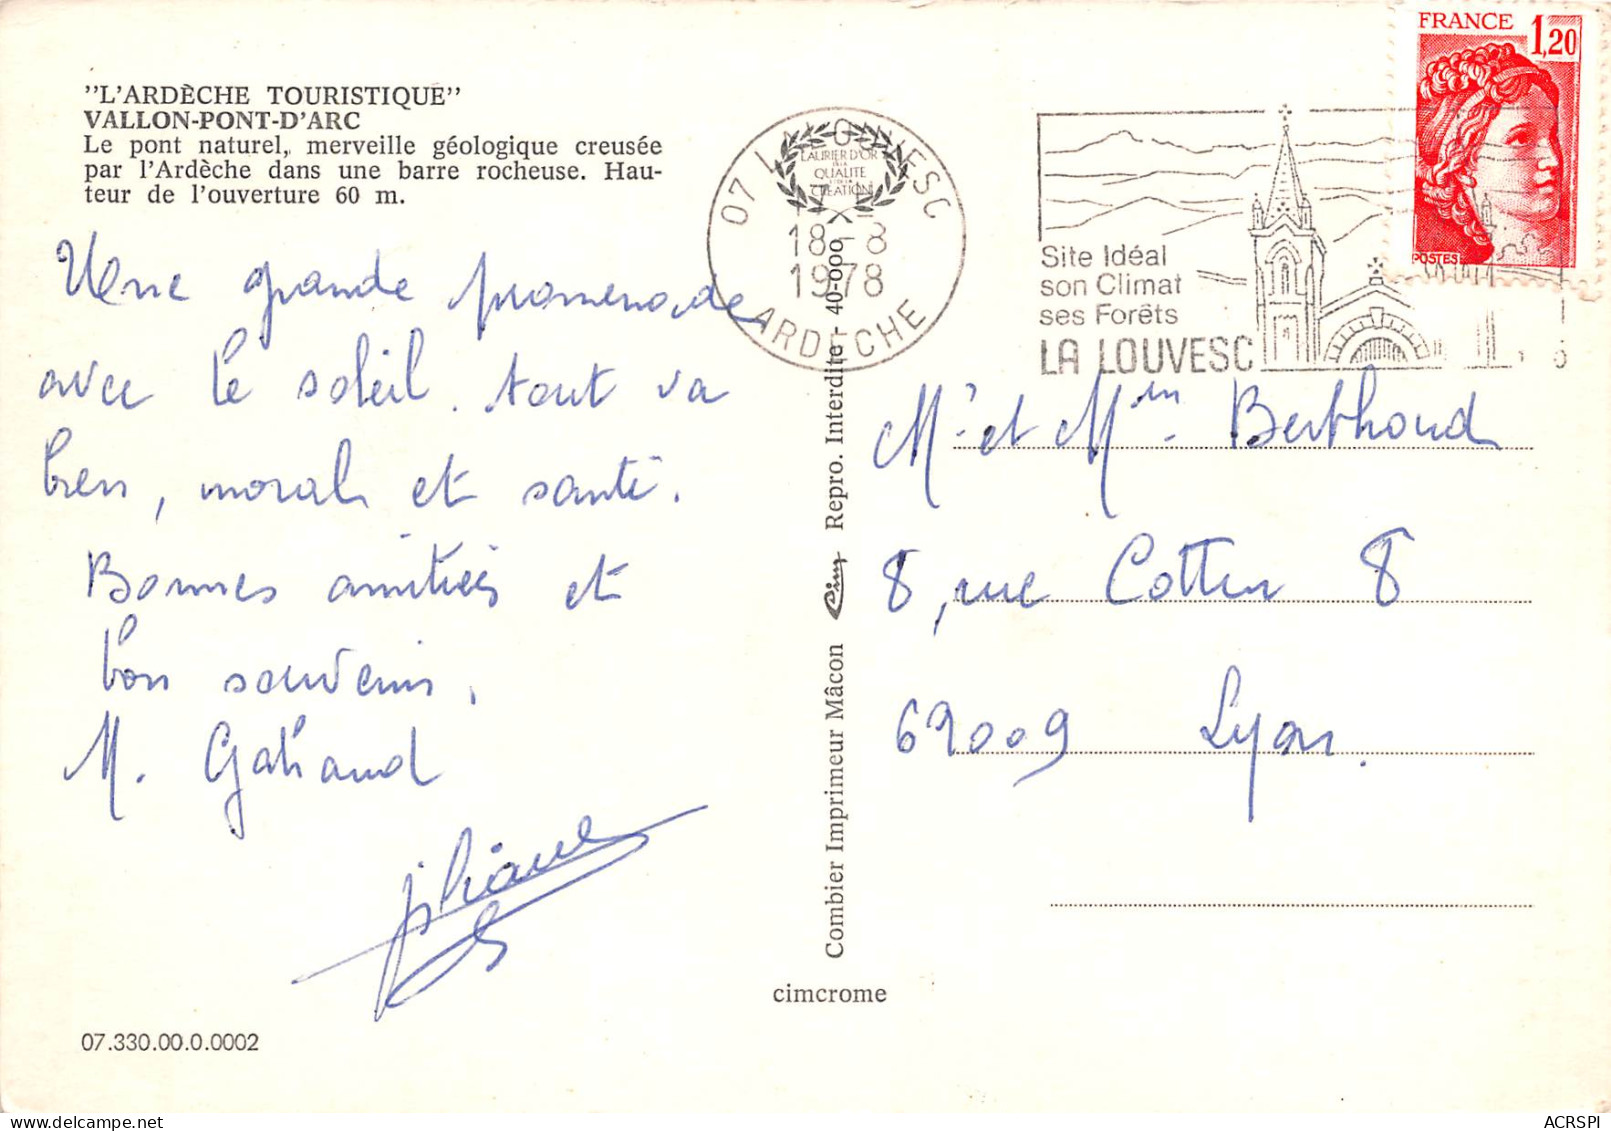 "L'ARDÈCHE TOURISTIQUE"
VALLON-PONT-D'ARC
Le pont naturel, merveille géologique creusée
par l'Ardèche dans une barre rocheuse. Hau-
teur de l'ouverture 60 m.
Une grande promenade
avec le soleil. tout va
bien, moral et santé.
Bonnes amitiés et
bon souvenir.
M.
07.330.00.0.0002
07 LA LOUVESC
18-8
1978
ARDECHE
LAURIER D'OR
DE LA
QUALITE
CREATION
Combier Imprimeur Mâcon Cim Repro. Interdite - 40-000
cimcrome
Site Idéal
son Climat
ses Forêts
LA LOUVESC
FRANCE 1,20
POSTES
Mr et Mm Berthoud
8, rue Cottin 8
69009 Lyon.
ACRSPI